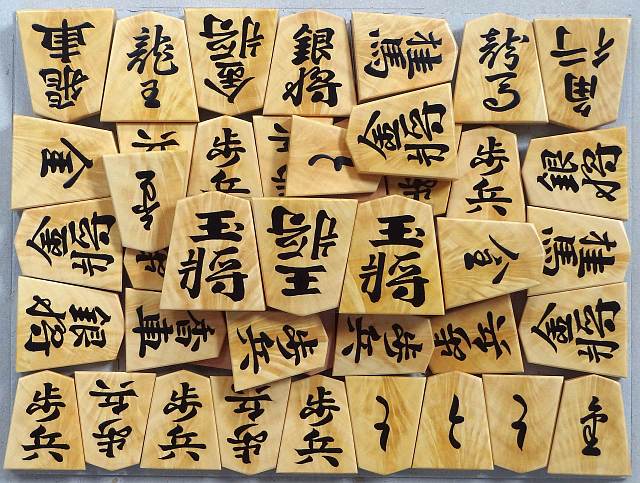 香車
龍王
金将
銀将
桂馬
龍馬
角行
歩兵
歩兵
と
金将
歩兵
銀将
金将
王将
王将
王将
桂馬
銀将
香車
歩兵
歩兵
歩兵
金将
歩兵
歩兵
歩兵
歩兵
歩兵
と
と
と